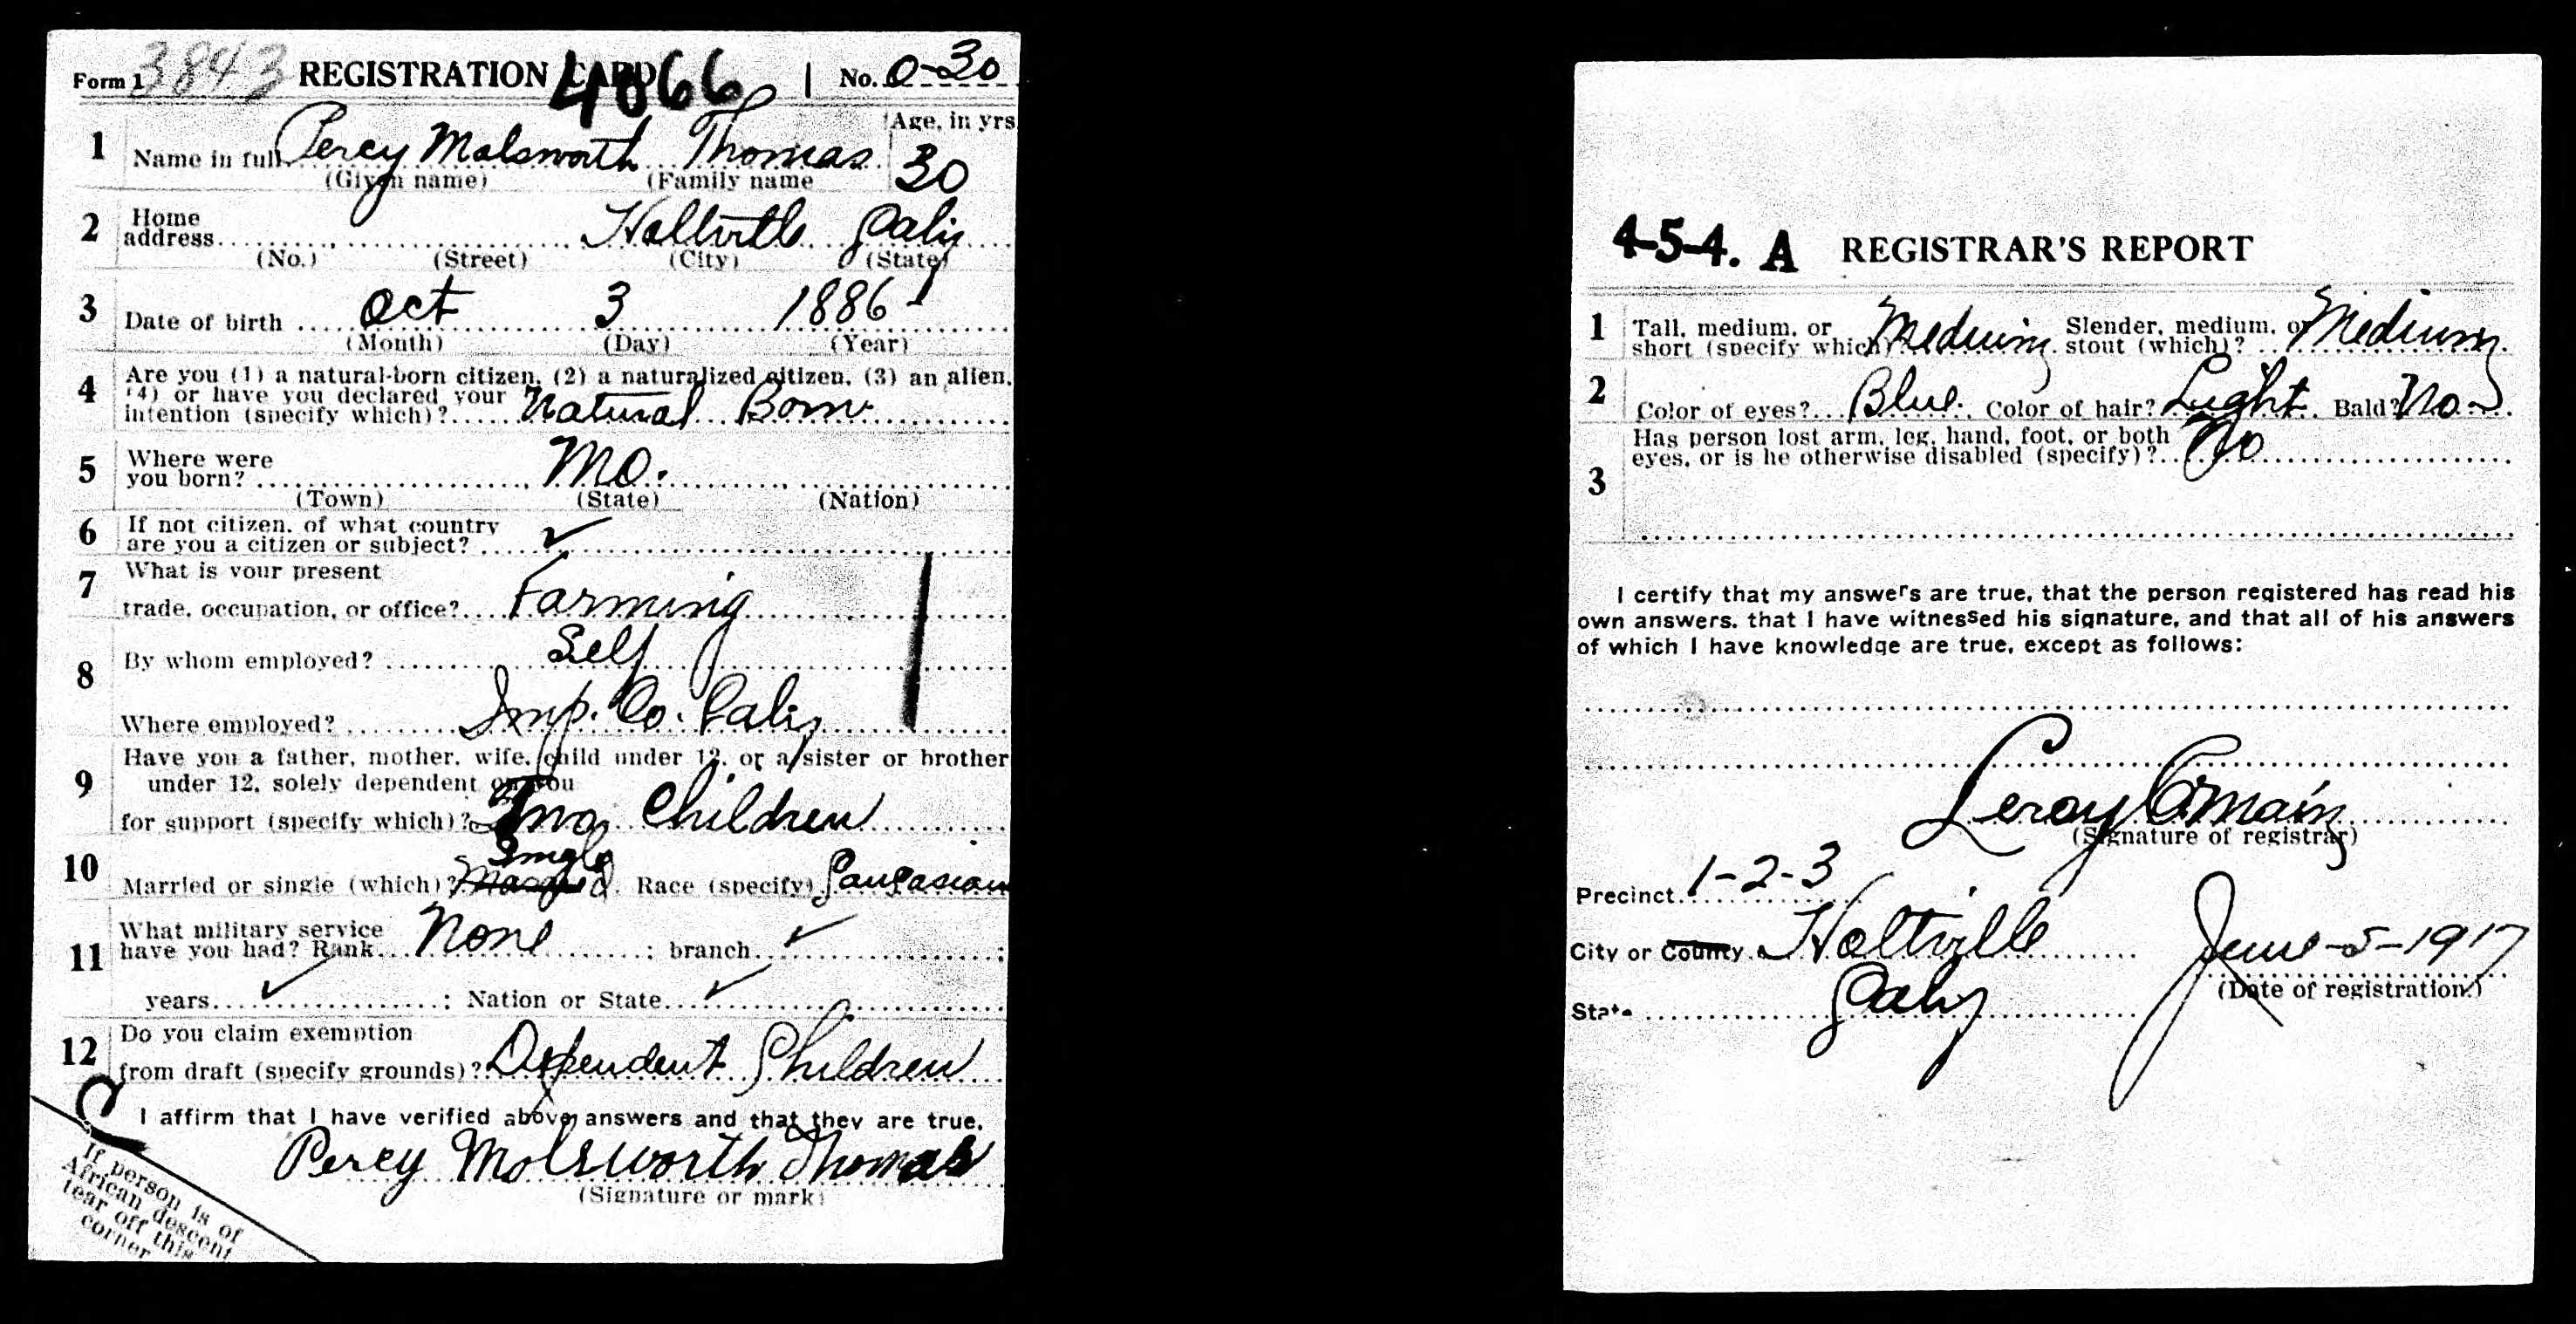 Form 1 3843 REGISTRATION CARD 4066 No. 0-30
Age, in yrs
1 Name in full Percy Molsworth Thomas 30
(Given name) (Family name
2 Home
address Holtville Calif
(No.) (Street) (City) (State)
3 Date of birth Oct 3 1886
(Month) (Day) (Year)
4 Are you (1) a natural-born citizen, (2) a naturalized citizen, (3) an alien,
(4) or have you declared your
intention (specify which)? Natural Born
5 Where were
you born? Mo.
(Town) (State) (Nation)
6 If not citizen, of what country
are you a citizen or subject? ✓
7 What is your present
trade, occupation, or office? Farming
8 By whom employed? Self
Where employed? Imp. Co. Calif
9 Have you a father, mother, wife, child under 12, or a sister or brother
under 12, solely dependent on you
for support (specify which)? Two Children
Single
10 Married or single (which)? Married Race (specify) Caucasian
11 What military service
have you had? Rank None ; branch ✓ ;
years ✓ ; Nation or State ✓
12 Do you claim exemption
from draft (specify grounds)? Dependent Children
I affirm that I have verified above answers and that they are true.
Percy Molsworth Thomas
(Signature or mark)
If person is of
African descent
tear off this
corner
4-5-4. A REGISTRAR'S REPORT
1 Tall, medium, or
short (specify which)? Medium Slender, medium, or
stout (which)? Medium
2 Color of eyes? Blue Color of hair? Light Bald? No
3 Has person lost arm, leg, hand, foot, or both
eyes, or is he otherwise disabled (specify)? No
I certify that my answers are true, that the person registered has read his
own answers, that I have witnessed his signature, and that all of his answers
of which I have knowledge are true, except as follows:
Leroy
(Signature of registrar)
Precinct 1-2-3
City or County Holtville June-5-1917
(Date of registration)
State Calif